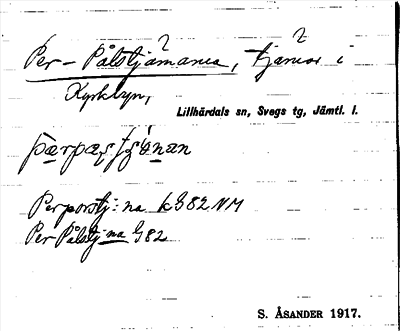 Per-Pålstjärnarna, tjärnar i
Kyrkbyn,
Lillhärdals sn, Svegs tg, Jämtl. l.
Perporstj:na k G82 NM
Per Pålstj na G82
S. ÅSANDER 1917.